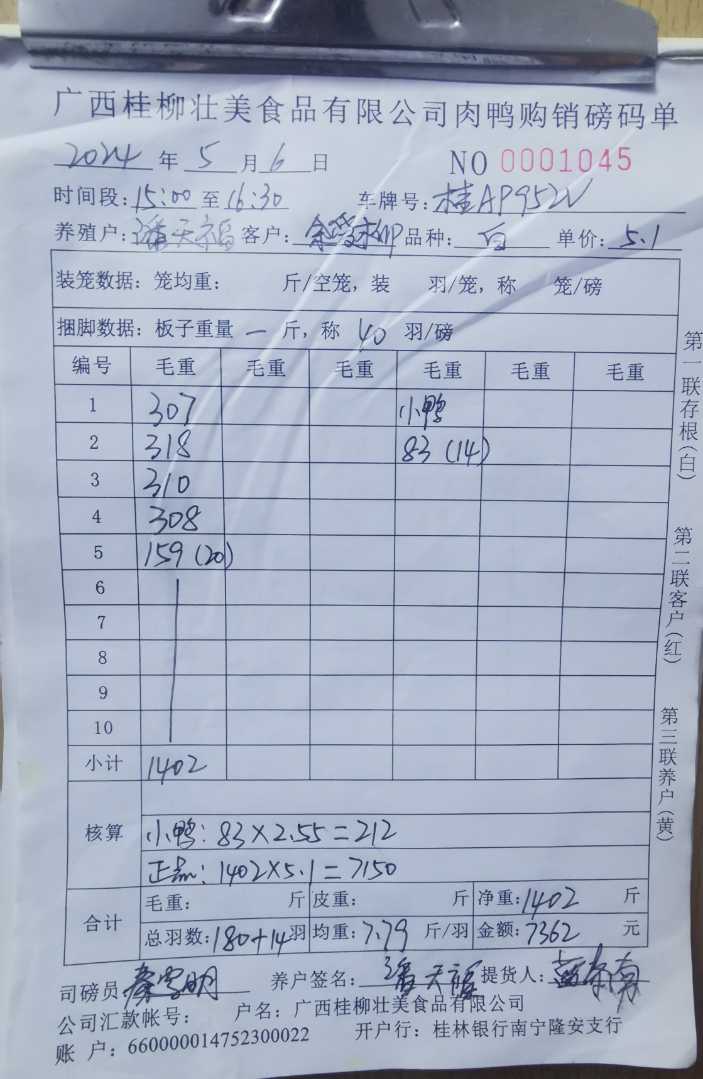 广西桂柳壮美食品有限公司肉鸭购销磅码单
2024 年 5 月 6 日 NO 0001045
时间段: 15:00 至 16:30 车牌号: 桂AP952V
养殖户: 潘天福 客户: 品种: 白 单价: 5.1
装笼数据: 笼均重: 斤/空笼, 装 羽/笼, 称 笼/磅
捆脚数据: 板子重量 一 斤, 称 40 羽/磅
编号 毛重 毛重 毛重 毛重 毛重 毛重
1 307 小鸭
2 318 83 (14)
3 310
4 308
5 159 (20)
6
7
8
9
10
小计 1402
核算
小鸭: 83×2.55=212
正品: 1402×5.1=7150
合计
毛重: 斤 皮重: 斤 净重: 1402 斤
总羽数: 180+14 羽 均重: 7.79 斤/羽 金额: 7362 元
司磅员: 养户签名: 潘天福 提货人:
公司汇款帐号: 户名: 广西桂柳壮美食品有限公司
账 户: 660000014752300022 开户行: 桂林银行南宁隆安支行
第一联存根(白)
第二联客户(红)
第三联养户(黄)